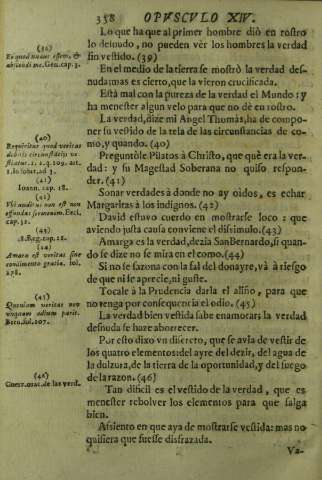 358 OPVSCVLO XIV.
Lo que ha que al primer hombre diò en rostro
lo desnudo, no pueden vèr los hombres la verdad
sin vestido. (39)
En el medio de la tierra se mostrò la verdad des-
nuda: mas es cierto, que la vieron crucificada.
Està mal con la pureza de la verdad el Mundo: y
ha menester algun velo para que no dè en rostro.
La verdad, dize mi Angel Thomàs, ha de compo-
ner su vestido de la tela de las circunstancias de co-
mo, y quando. (40)
Preguntòle Pilatos à Christo, que què era la ver-
dad: y su Magestad Soberana no quiso respon-
der. (41)
Sonar verdades à donde no ay oidos, es echar
Margaritas à los indignos. (42)
David estuvo cuerdo en mostrarse loco: que
aviendo justa causa conviene el dissimulo. (43)
Amarga es la verdad, dezia San Bernardo, si quan-
do se dize no se mira en el como. (44)
Si no se sazona con la sal del donayre, và à riesgo
de que ni se aprecie, ni guste.
Tocale à la Prudencia darla el aliño, para que
no tenga por consequencia el odio. (45)
La verdad bien vestida sabe enamorar; la verdad
desnuda se haze aborrecer.
Por esto dixo vn discreto, que se avia de vestir de
los quatro elementos: del ayre del dezir, del agua de
la dulzura, de la tierra de la oportunidad, y del fuego
de la razon. (46)
Tan dificil es el vestido de la verdad, que es
menester rebolver los elementos para que salga
bien.
Assiento en que aya de mostrarse vestida: mas no
quisiera que fuesse disfrazada.
Va-
(39)
abscondi me. Gen. cap. 3.
(40)
Requiritur quod veritas
debitis circunstantijs ve-
stiatur. 2. 2. q. 109. art.
(41)
Ioann. cap. 18.
(42)
Vbi auditus non est non
effundas sermonem. Eccl.
cap. 32.
(43)
1. Reg. cap. 21.
(44)
Amara est veritas sine
condimento gratiæ.
278.
(45)
Quoniam veritas
nunquam odium parit.
Bern. fol. 207.
(46)